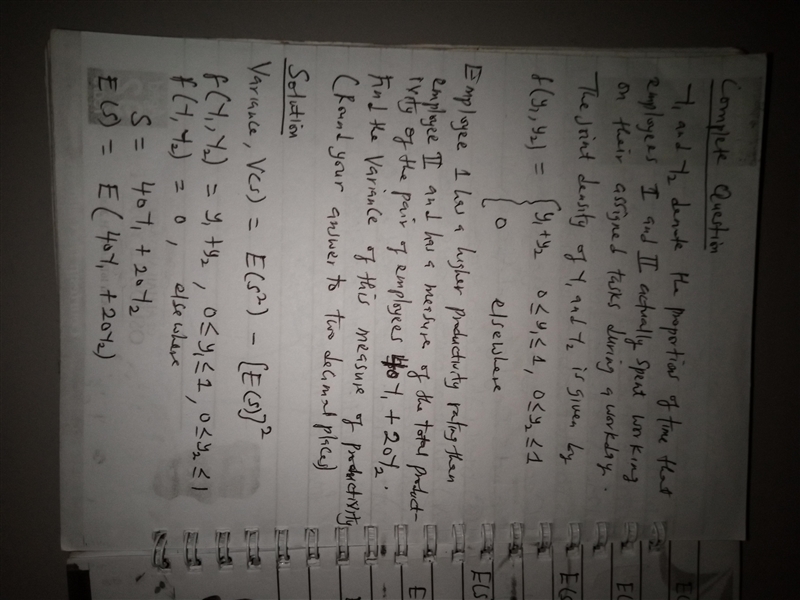 Complete Question
Y1 and Y2 denote the proportions of time that
employees I and II actually spent working
on their assigned tasks during a workday.
The joint density of Y1 and Y2 is given by
f(y1, y2) = { y1+y2 0≤y1≤1, 0≤y2≤1
{ 0 elsewhere
Employee 1 has a higher productivity rating than
employee II and has a measure of the total product-
ivity of the pair of employees 40Y1 + 20Y2.
find the Variance of this measure of productivity
(Round your answer to two decimal places)
Solution
Variance, V(s) = E(s²) - [E(s)]²
f(Y1, Y2) = y1+y2, 0≤y1≤1, 0≤y2≤1
f(Y1, Y2) = 0, elsewhere
S = 40Y1 + 20Y2
E(s) = E(40Y1 + 20Y2)